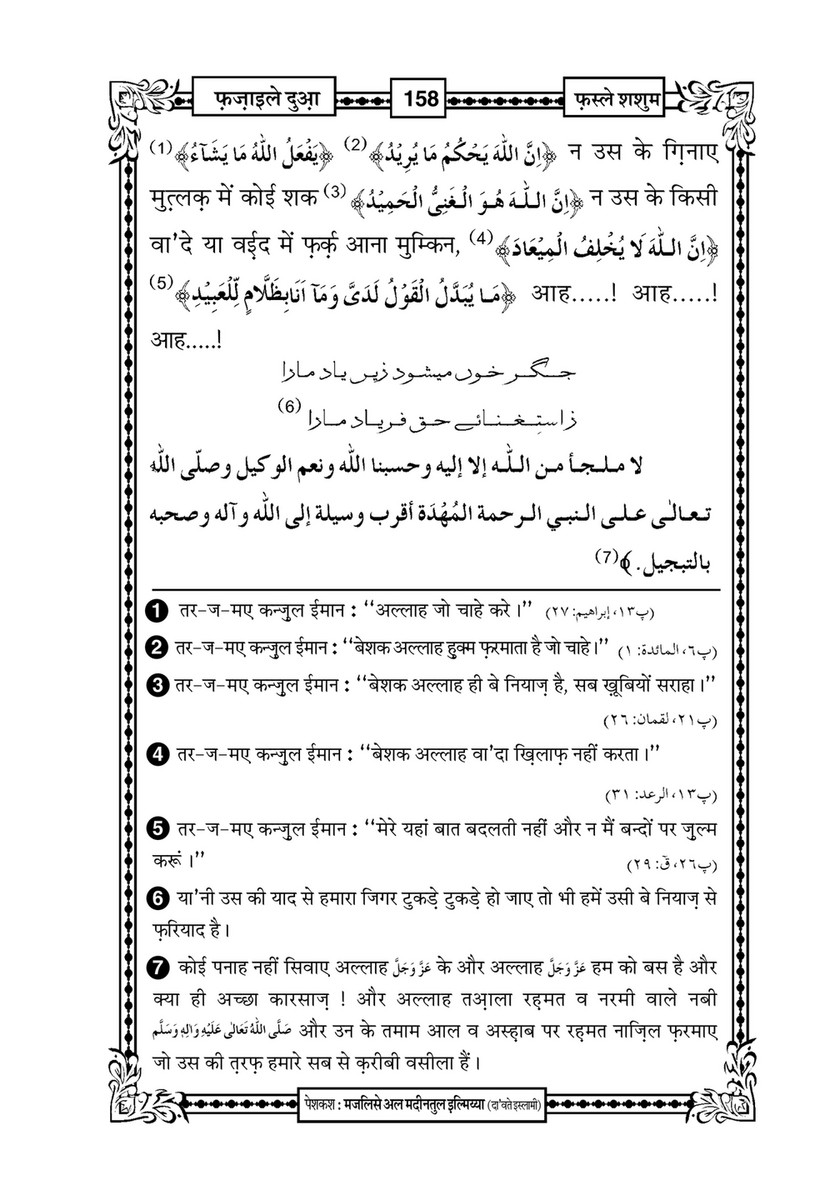 फ़ज़ाइले दुआ़ 158 फ़स्ले शशुम
﴿يَفْعَلُ اللّٰهُ مَا يَشَآءُ﴾(1) ﴿اِنَّ اللّٰهَ يَحْكُمُ مَا يُرِيْدُ﴾(2) न उस के ग़िनाए
मुत़्लक़ में कोई शक (3)﴿اِنَّ اللّٰهَ هُوَ الْغَنِىُّ الْحَمِيْدُ﴾ न उस के किसी
वा'दे या वई़द में फ़र्क़ आना मुम्किन, (4)﴿اِنَّ اللّٰهَ لَا يُخْلِفُ الْمِيْعَادَ﴾
(5)﴿مَا يُبَدَّلُ الْقَوْلُ لَدَىَّ وَمَآ اَنَا بِظَلَّامٍ لِّلْعَبِيْدِ﴾ आह.....! आह.....!
आह.....!
جگر خوں میشود زیں یاد مارا
زاستِغنائے حق فریاد مارا (6)
لا ملجأ من اللّٰه إلا إليه وحسبنا اللّٰه ونعم الوكيل وصلّى اللّٰه
تعالٰى على النبي الرحمة المُهْدَة أقرب وسيلة إلى اللّٰه وآله وصحبه
بالتبجيل.﴾(7)
1 तर-ज-मए कन्ज़ुल ईमान : ‘‘अल्लाह जो चाहे करे।’’ (پ١٣، إبراهيم: ٢٧)
2 तर-ज-मए कन्ज़ुल ईमान : ‘‘बेशक अल्लाह हुक्म फ़रमाता है जो चाहे।’’ (پ٦، المائدة: ١)
3 तर-ज-मए कन्ज़ुल ईमान : ‘‘बेशक अल्लाह ही बे नियाज़ है, सब ख़ूबियों सराहा।’’
(پ٢١، لقمان: ٢٦)
4 तर-ज-मए कन्ज़ुल ईमान : ‘‘बेशक अल्लाह वा'दा ख़िलाफ़ नहीं करता।’’
(پ١٣، الرعد: ٣١)
5 तर-ज-मए कन्ज़ुल ईमान : ‘‘मेरे यहां बात बदलती नहीं और न मैं बन्दों पर ज़ुल्म
करूं।’’ (پ٢٦، قٓ: ٢٩)
6 या'नी उस की याद से हमारा जिगर टुकड़े टुकड़े हो जाए तो भी हमें उसी बे नियाज़ से
फ़रियाद है।
7 कोई पनाह नहीं सिवाए अल्लाह عَزَّ وَجَلَّ के और अल्लाह عَزَّ وَجَلَّ हम को बस है और
क्या ही अच्छा कारसाज़ ! और अल्लाह तआ़ला रह़मत व नरमी वाले नबी
صَلَّى اللّٰهُ تَعَالٰى عَلَيْهِ وَاٰلِهٖ وَسَلَّم और उन के तमाम आल व अस्ह़ाब पर रह़मत नाज़िल फ़रमाए
जो उस की त़रफ़ हमारे सब से क़रीबी वसीला हैं।
पेशकश : मजलिसे अल मदीनतुल इ़ल्मिय्या (दा'वते इस्लामी)